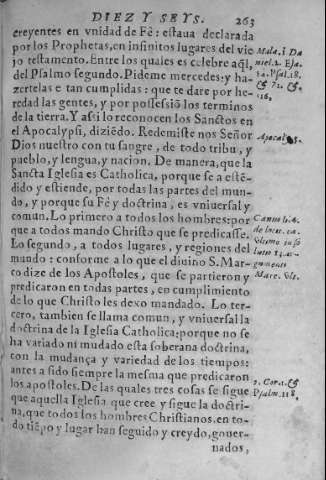 DIEZ Y SEYS. 263
creyentes en vnidad de Fè: estaua declarada
por los Prophetas, en infinitos lugares del vie
jo testamento. Entre los quales es celebre aq̃l,
del Psalmo segundo. Pideme mercedes: y ha-
zertelas e tan cumplidas: que te dare por he-
redad las gentes, y por possessiõ los terminos
de la tierra. Y assi lo reconocen los Sanctos en
el Apocalypsi, diziẽdo. Redemiste nos Señor
Dios nuestro con tu sangre, de todo tribu, y
pueblo, y lengua, y nacion. De manera, que la
Sancta Iglesia es Catholica, porque se a estẽ-
dido y estiende, por todas las partes del mun-
do, y porque su Fè y doctrina, es vniuersal y
comun. Lo primero a todos los hombres: por
que a todos mando Christo que se predicasse.
Lo segundo, a todos lugares, y regiones del
mundo: conforme a lo que el diuino S. Mar-
to dize de los Apostoles, que se partieron y
predicaron en todas partes, en cumplimiento
de lo que Christo les dexo mandado. Lo ter-
cero, tambien se llama comun, y vniuersal la
doctrina de la Iglesia Catholica: porque no se
ha variado ni mudado esta soberana doctrina,
con la mudança y variedad de los tiempos:
antes a sido siempre la mesma que predicaron
los apostoles. De las quales tres cosas se sigue
que aquella Iglesia que cree y sigue la doctri-
na, que todos los hombres Christianos, en to-
do tiẽpo y lugar han seguido y creydo, gouer-
nados,
Mala. 1 Da
niel. 2. Esa.
Psal. 18.
& 72. &
Apocal. 5.
Canus l. 4.
de locis ca.
Marc. vlt.
2. Cor. 1. &
Psalm. 118,